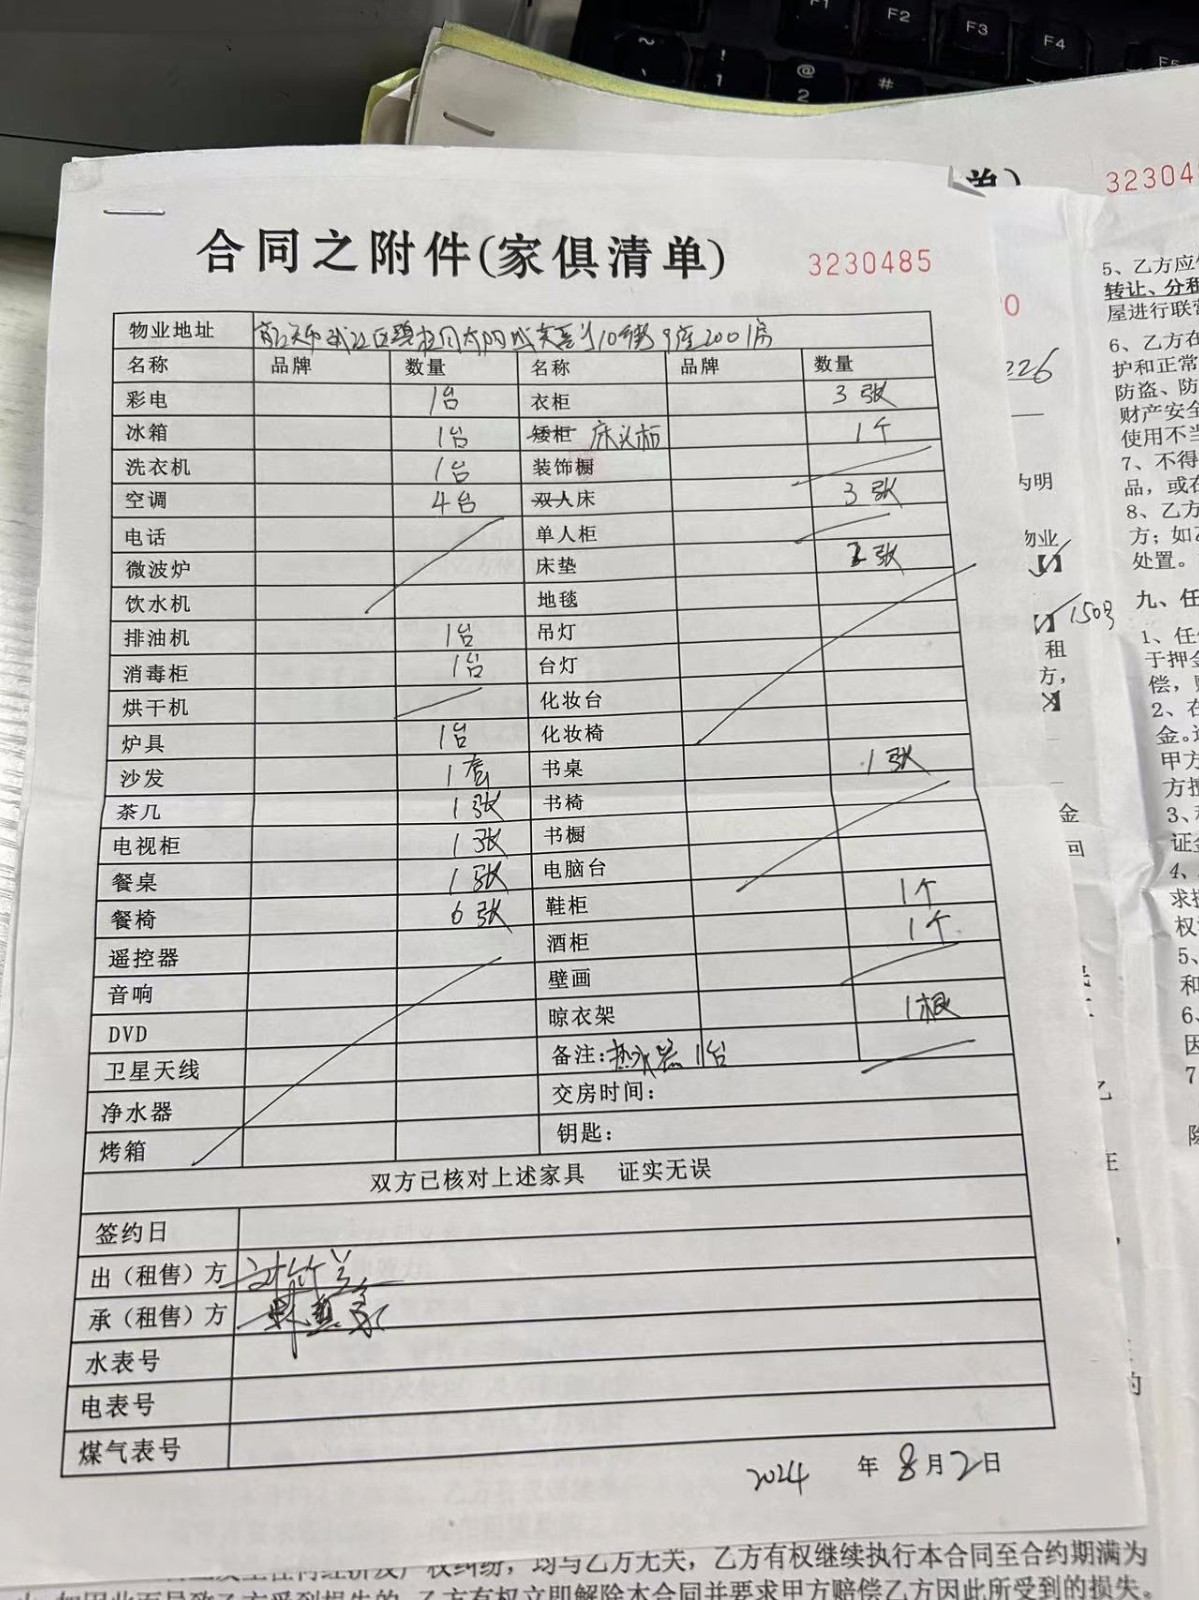 F1 F2 F3 F4 F5
~ ! @ #
1 2
单）
32304
合同之附件(家俱清单) 3230485
物业地址 碧桂园太阳城 10 9座2001房
名称 品牌 数量 名称 品牌 数量
彩电 1台 衣柜 3张
冰箱 1台 矮柜 床头柜 1个
洗衣机 1台 装饰橱
空调 4台 双人床 3张
电话 单人柜
微波炉 床垫 张
饮水机 地毯
排油机 1台 吊灯
消毒柜 1台 台灯
烘干机 化妆台
炉具 1台 化妆椅
沙发 1套 书桌 1张
茶几 1张 书椅
电视柜 1张 书橱
餐桌 1张 电脑台
餐椅 6张 鞋柜 1个
遥控器 酒柜 1个
音响 壁画
DVD 晾衣架 1根
卫星天线 备注:热水器1台
净水器 交房时间:
烤箱 钥匙:
双方已核对上述家具 证实无误
签约日
出（租售）方
承（租售）方
水表号
电表号
煤气表号
2024 年 8月2日
226
为明
物业
1503
租
方，
金
回
5、乙方应
转让、分租
屋进行联营
6、乙方在
护和正常
防盗、防
财产安全
使用不当
7、不得
品，或在
8、乙方
方；如乙
处置。
九、任
1、任
于押金
偿，
2、在
金。
甲方
方擅
3、
证金
4、
求
权
5、
和
6、
因
7
权纠纷，均与乙方无关，乙方有权继续执行本合同至合约期满为
乙方有权立即解除本合同并要求甲方赔偿乙方因此所受到的损失。